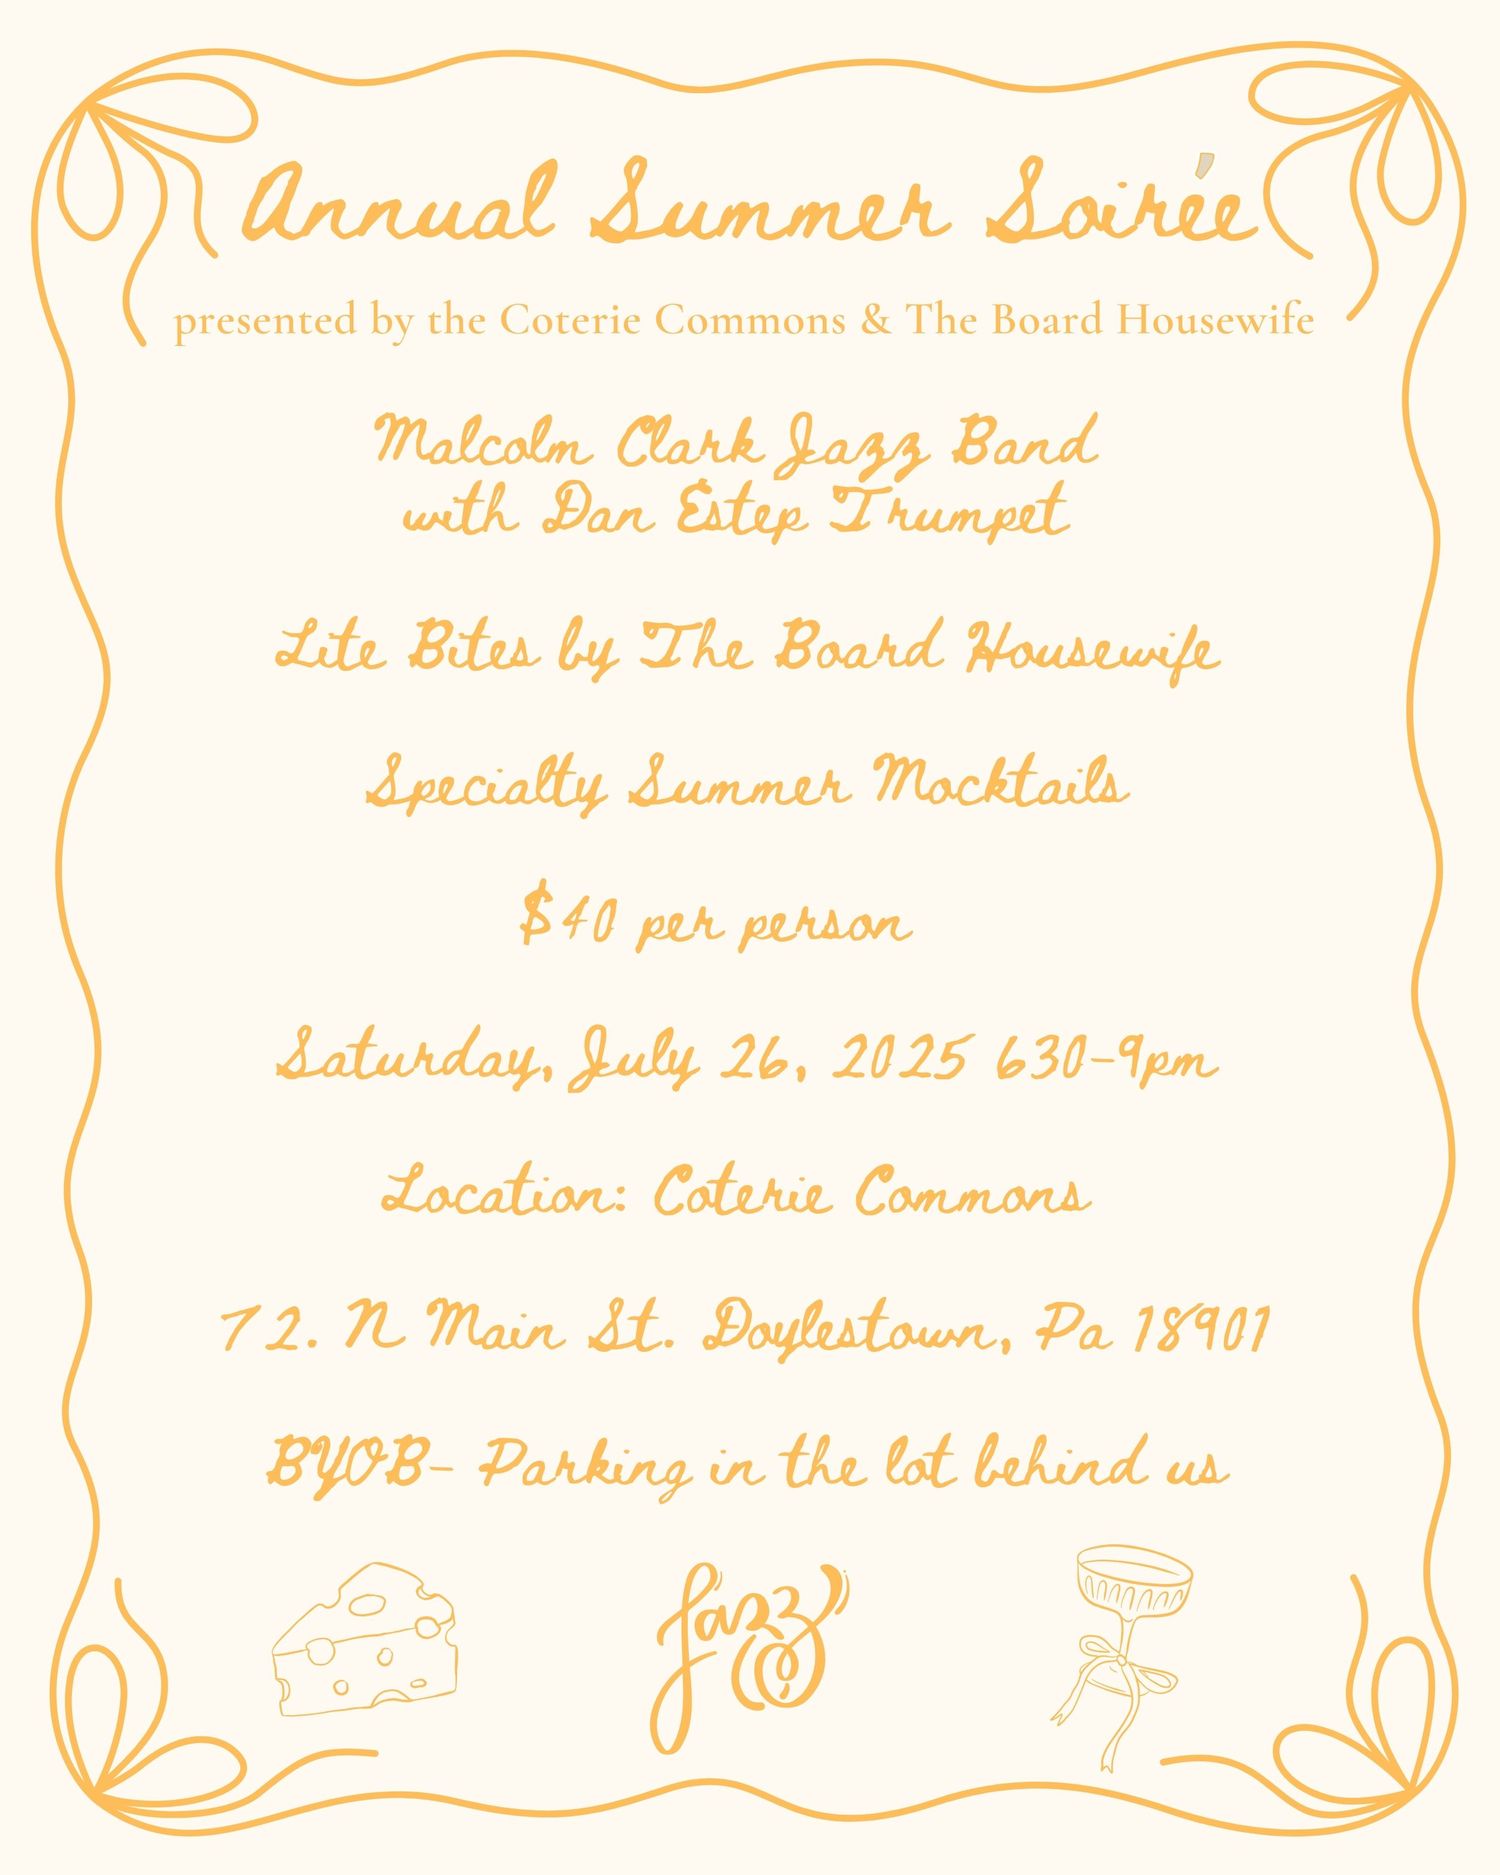 Annual Summer Soirée
presented by the Coterie Commons & The Board Housewife
Malcolm Clark Jazz Band
with Dan Estep Trumpet
Lite Bites by The Board Housewife
Specialty Summer Mocktails
$40 per person
Saturday, July 26, 2025 630-9pm
Location: Coterie Commons
72. N Main St. Doylestown, Pa 18901
BYOB- Parking in the lot behind us
Jazz